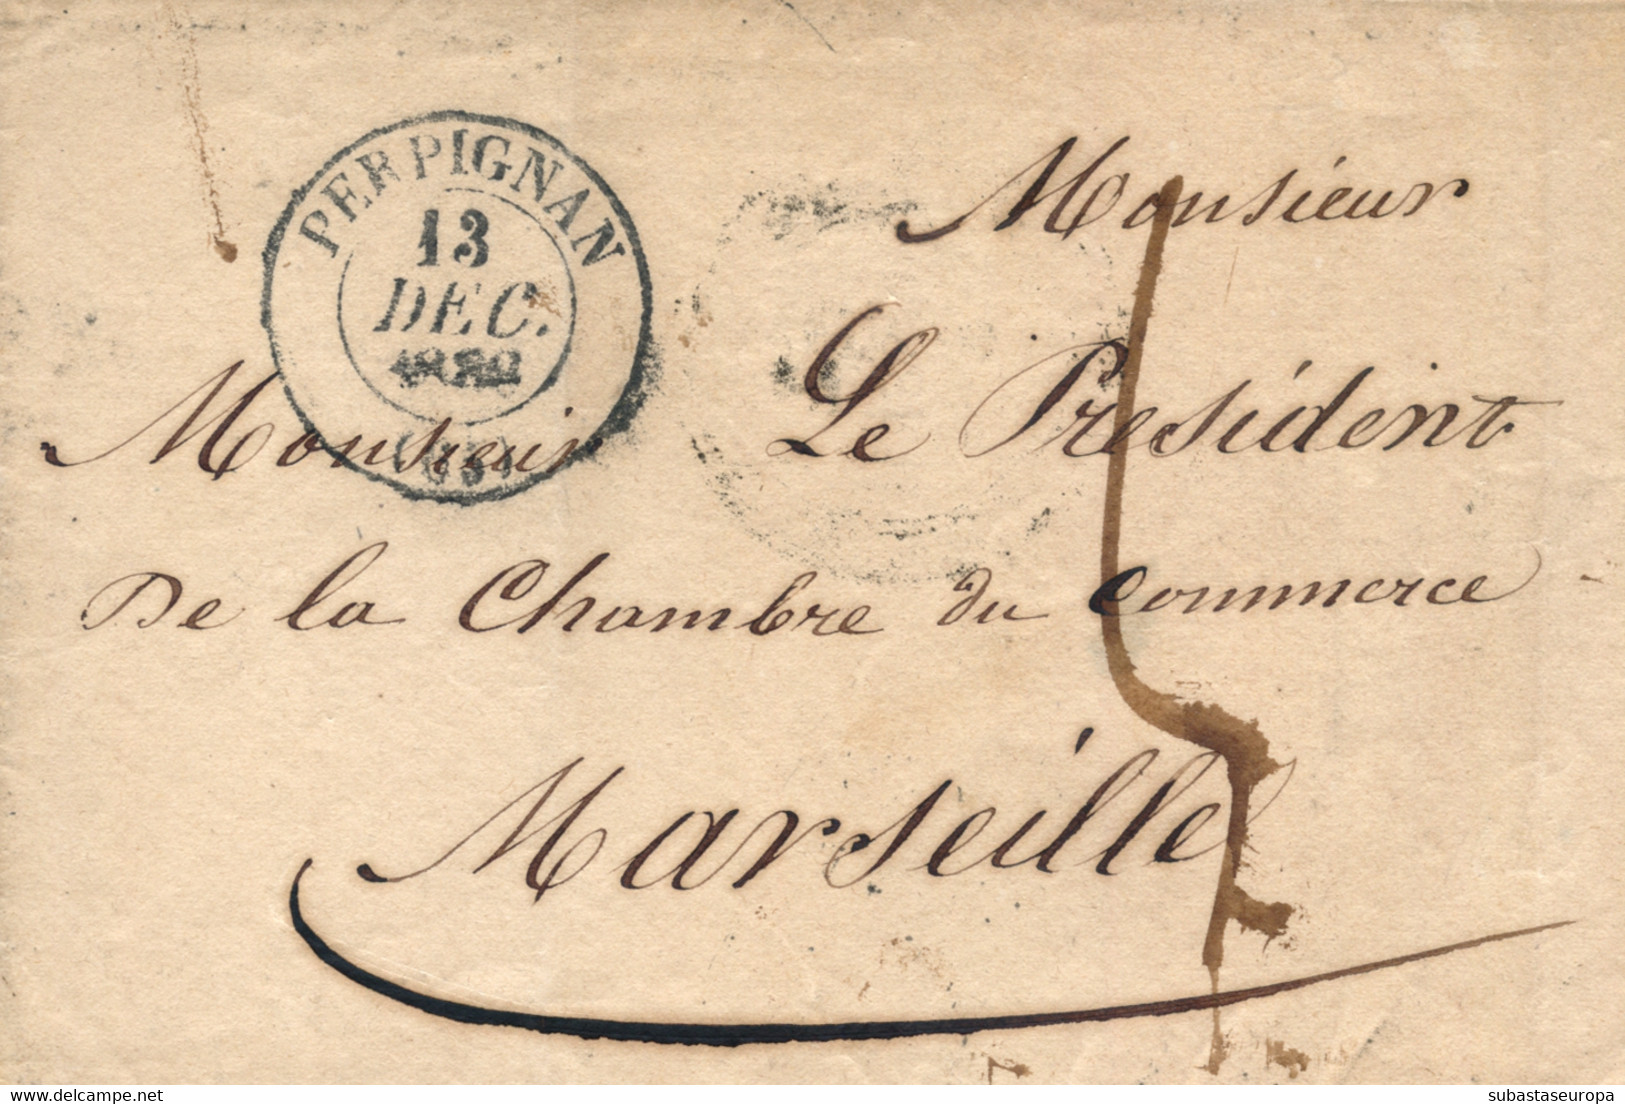 PERPIGNAN
13
DEC.
(65)
Monsieur
Monsieur Le President
De la Chambre du Commerce
Marseille
delcampe.net
subastaseuropa